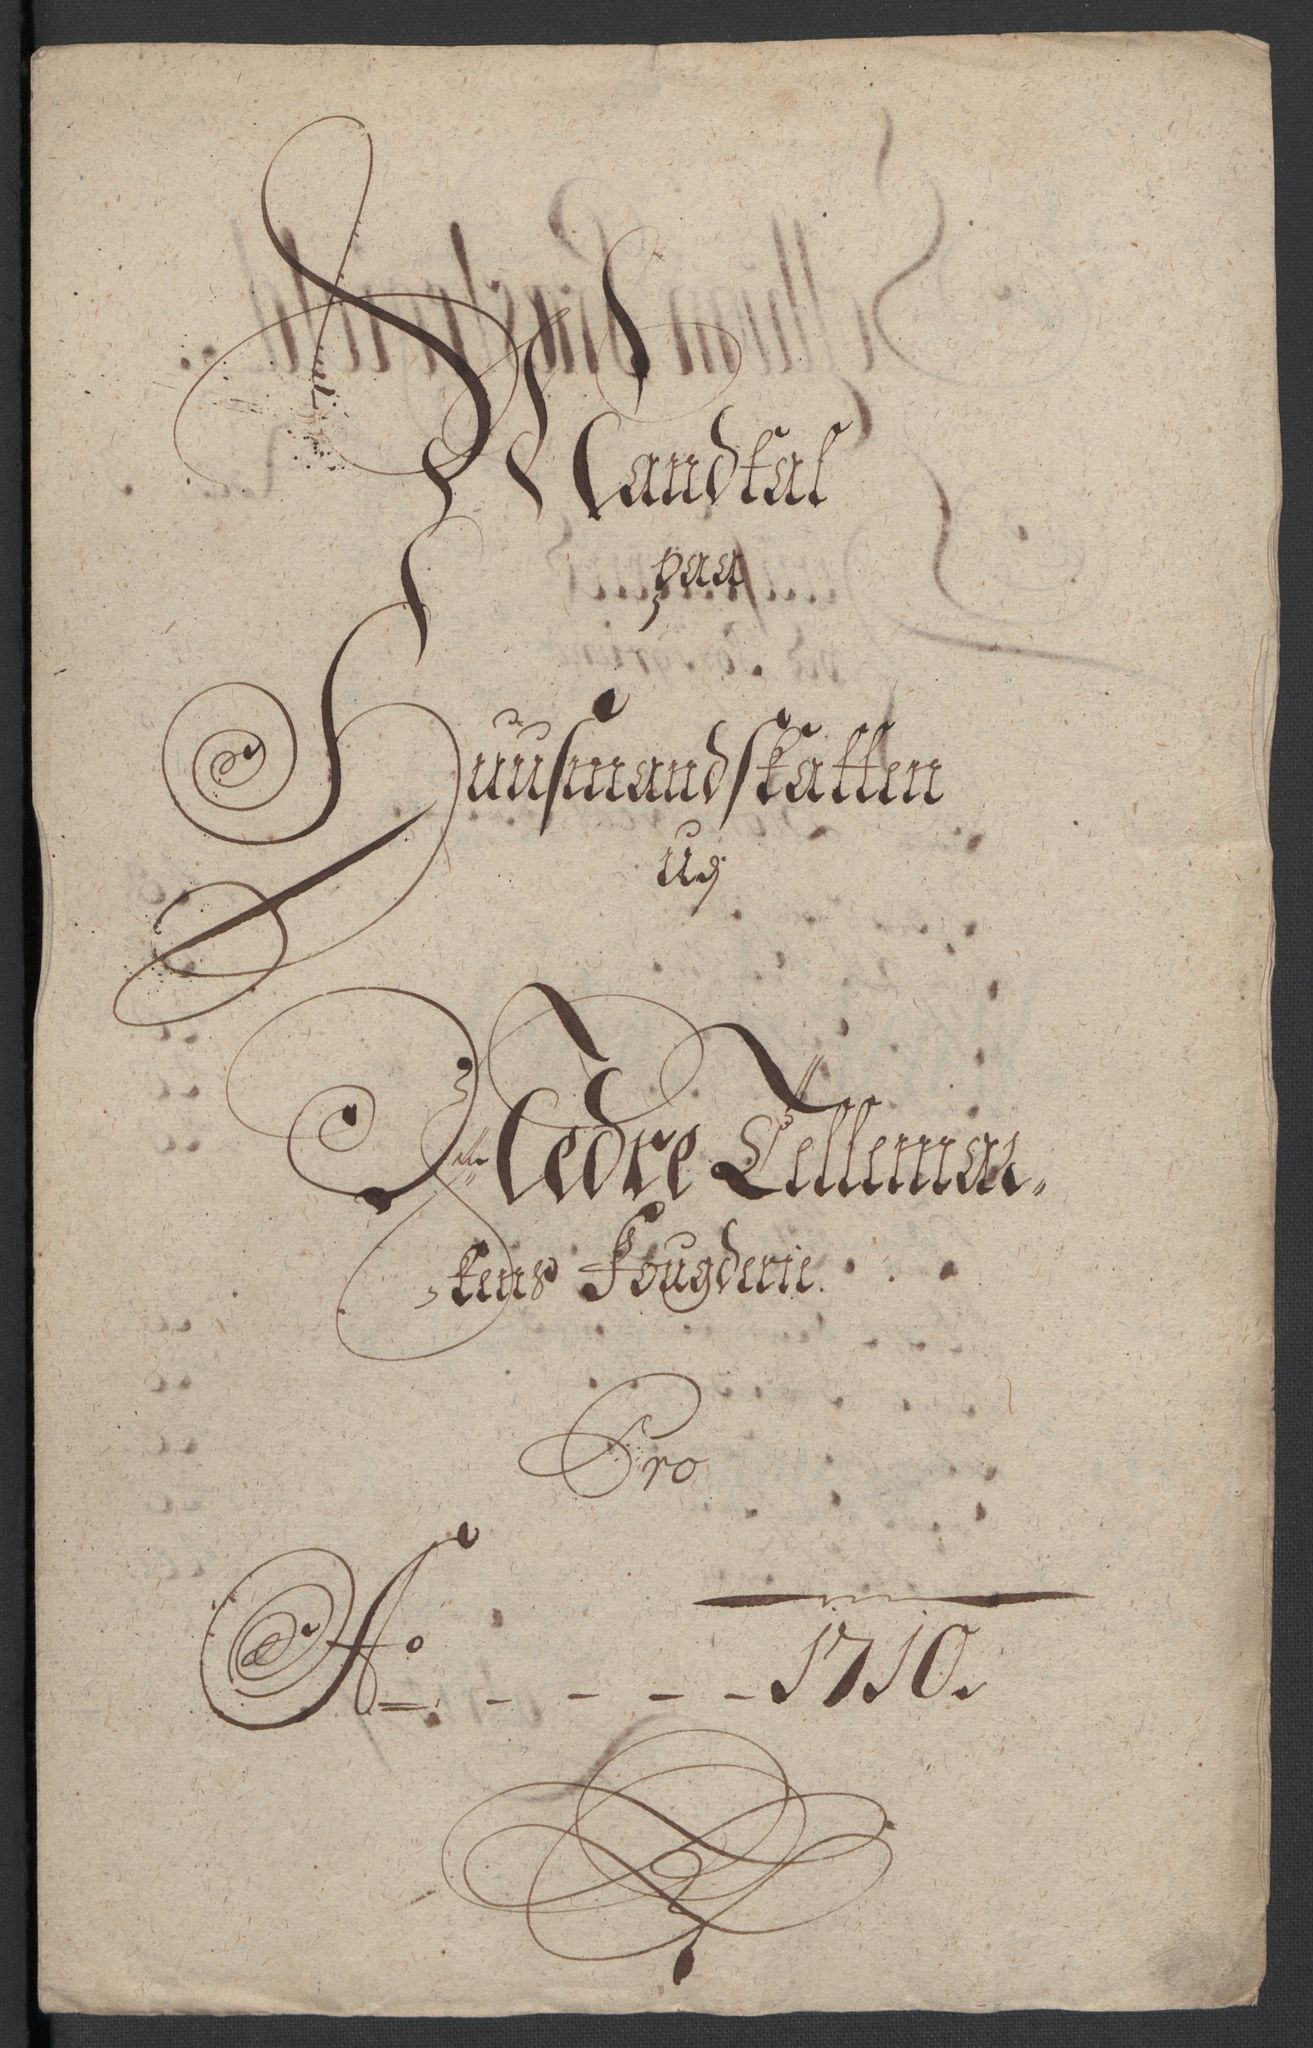 Mandtal
paa
Huusmandskatten
udj
Nedre Tellemar=
kens Fougderie.
Pro
Ao - - - - 1710.